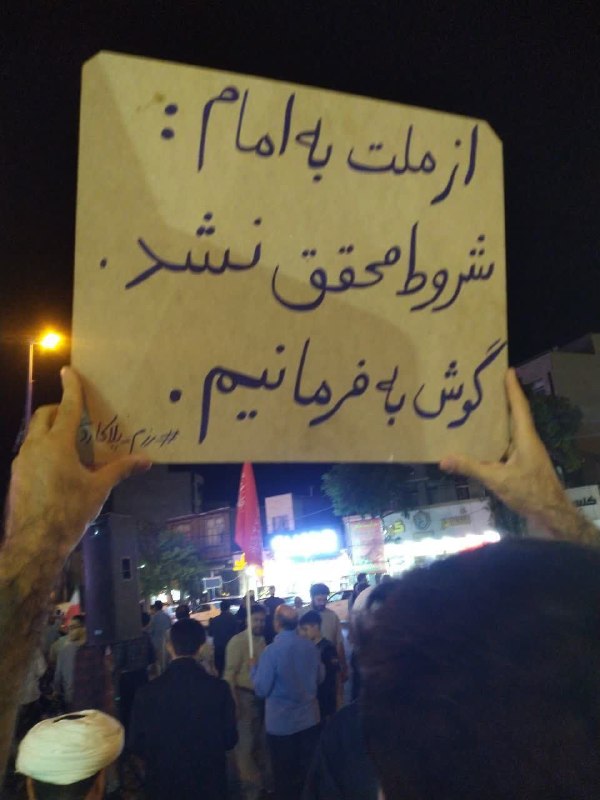 از ملت به امام :
شروط محقق نشد .
گوش به فرمانیم .